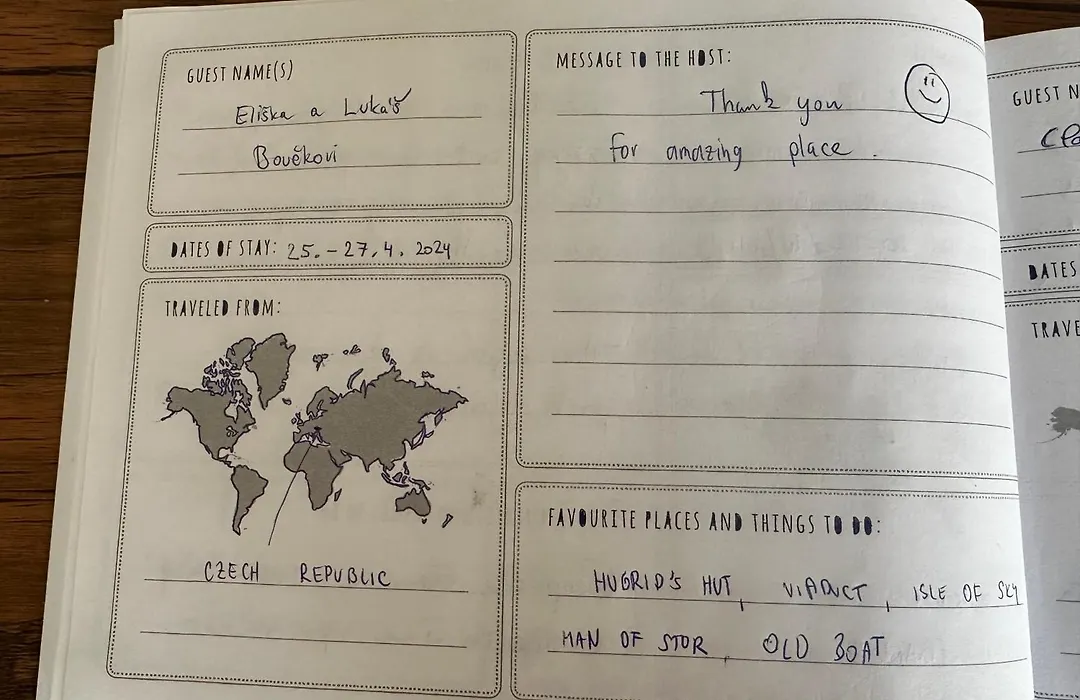 GUEST NAME(S)
Eliška a Lukáš
Bouěkovi
DATES OF STAY: 25. - 27. 4. 2024
TRAVELED FROM:
CZECH REPUBLIC
MESSAGE TO THE HOST:
Thank you
for amazing place.
FAVOURITE PLACES AND THINGS TO DO:
HUGRID'S HUT, VIADUCT, ISLE OF SKY
MAN OF STOR, OLD BOAT
GUEST N
DATES
TRAVE